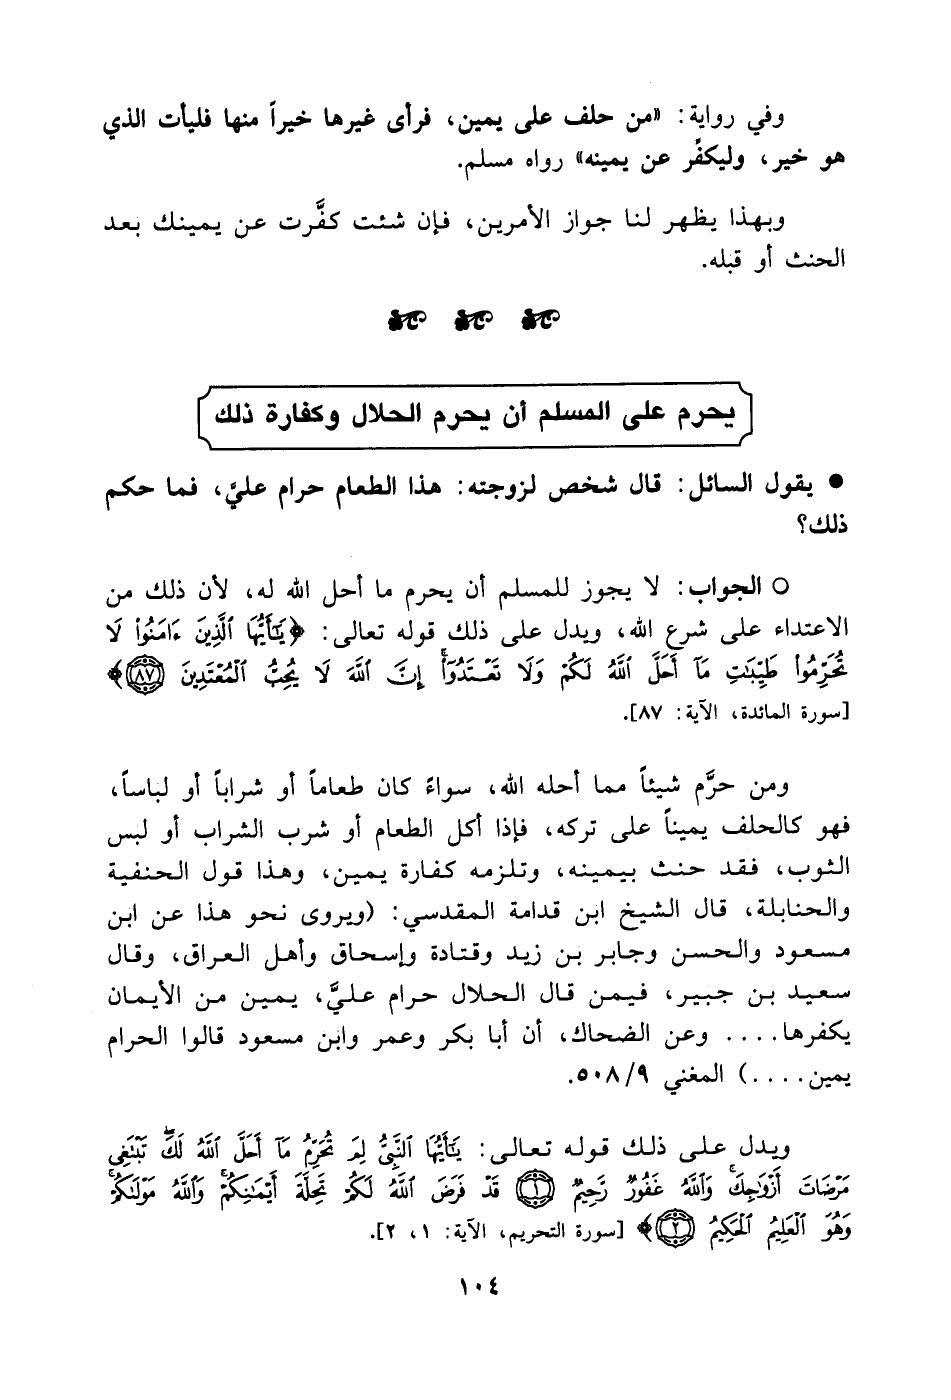 وفي رواية: «من حلف على يمين، فرأى غيرها خيراً منها فليأت الذي
هو خير، وليكفِّر عن يمينه» رواه مسلم.
وبهذا يظهر لنا جواز الأمرين، فإن شئت كفَّرت عن يمينك بعد
الحنث أو قبله.
يحرم على المسلم أن يحرم الحلال وكفارة ذلك
● يقول السائل: قال شخص لزوجته: هذا الطعام حرام عليَّ، فما حكم
ذلك؟
○ الجواب: لا يجوز للمسلم أن يحرم ما أحل الله له، لأن ذلك من
الاعتداء على شرع الله، ويدل على ذلك قوله تعالى: ﴿يَٰٓأَيُّهَا ٱلَّذِينَ ءَامَنُوا۟ لَا
تُحَرِّمُوا۟ طَيِّبَٰتِ مَآ أَحَلَّ ٱللَّهُ لَكُمْ وَلَا تَعْتَدُوٓا۟ ۚ إِنَّ ٱللَّهَ لَا يُحِبُّ ٱلْمُعْتَدِينَ ٨٧﴾
[سورة المائدة، الآية: ٨٧].
ومن حرَّم شيئاً مما أحله الله، سواءً كان طعاماً أو شراباً أو لباساً،
فهو كالحلف يميناً على تركه، فإذا أكل الطعام أو شرب الشراب أو لبس
الثوب، فقد حنث بيمينه، وتلزمه كفارة يمين، وهذا قول الحنفية
والحنابلة، قال الشيخ ابن قدامة المقدسي: (ويروى نحو هذا عن ابن
مسعود والحسن وجابر بن زيد وقتادة وإسحاق وأهل العراق، وقال
سعيد بن جبير، فيمن قال الحلال حرام عليَّ، يمين من الأيمان
يكفرها.... وعن الضحاك، أن أبا بكر وعمر وابن مسعود قالوا الحرام
يمين....) المغني ٥٠٨/٩.
ويدل على ذلك قوله تعالى: يَٰٓأَيُّهَا ٱلنَّبِىُّ لِمَ تُحَرِّمُ مَآ أَحَلَّ ٱللَّهُ لَكَ ۖ تَبْتَغِى
مَرْضَاتَ أَزْوَٰجِكَ ۚ وَٱللَّهُ غَفُورٌ رَّحِيمٌ ١ قَدْ فَرَضَ ٱللَّهُ لَكُمْ تَحِلَّةَ أَيْمَٰنِكُمْ ۚ وَٱللَّهُ مَوْلَىٰكُمْ ۖ
وَهُوَ ٱلْعَلِيمُ ٱلْحَكِيمُ ٢﴾ [سورة التحريم، الآية: ١، ٢].
١٠٤